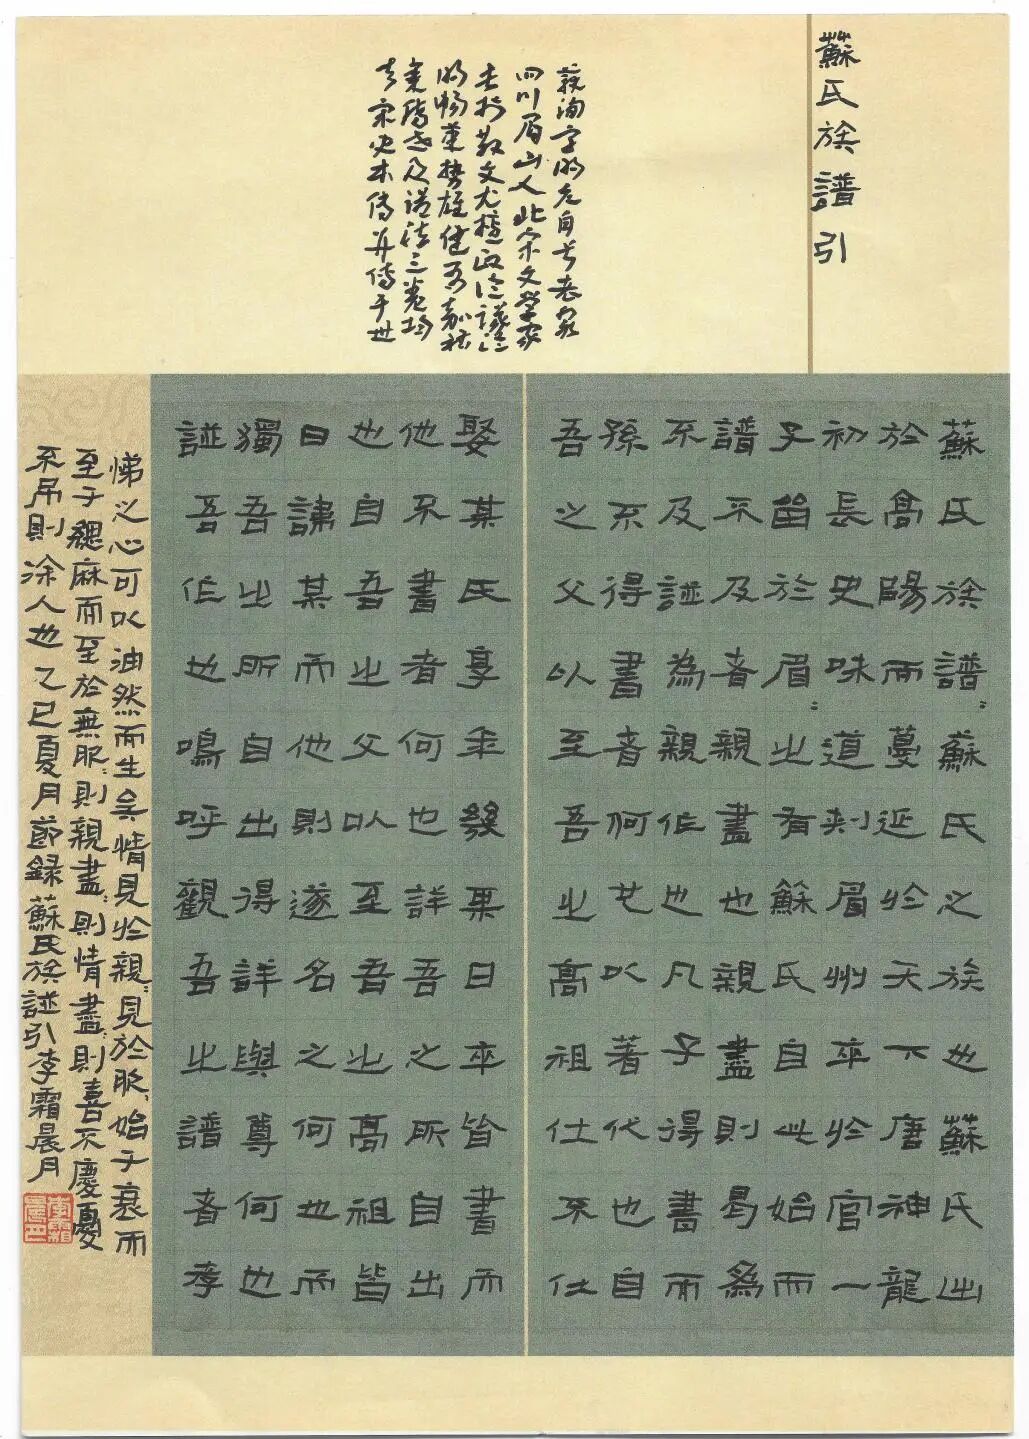 蘇氏族譜引
蘇洵字明允自号老泉
四川眉山人北宋文学家
长於散文尤擅政论議论
明畅筆势雄健有嘉祐
集傳世及谥法三卷均
与宋史本传並传于世
蘇氏族譜〻蘇氏之族也蘇氏出
於高陽而蔓延於天下唐神龍
初長史味道刺眉州卒於官一
子留於眉〻之有蘇氏自此始而
譜不及者親盡也親盡則曷為
不及譜為親作也凡子得書而
孫不得書者何也以著代也自
吾之父以至吾之高祖仕不仕
娶某氏享年幾某日卒皆書而
他不書者何也詳吾之所自出
也自吾之父以至吾之高祖皆
曰諱某而他則遂名之何也而
獨吾之所自出得詳與尊何也
譜吾作也鳴呼觀吾之譜者孝
悌之心可以油然而生矣情見於親〻見於服〻始于衰而
至于緦麻而至於無服〻則親盡〻則情盡〻則喜不慶憂
不吊則涂人也乙巳夏月節録蘇氏族譜引李霜晨月